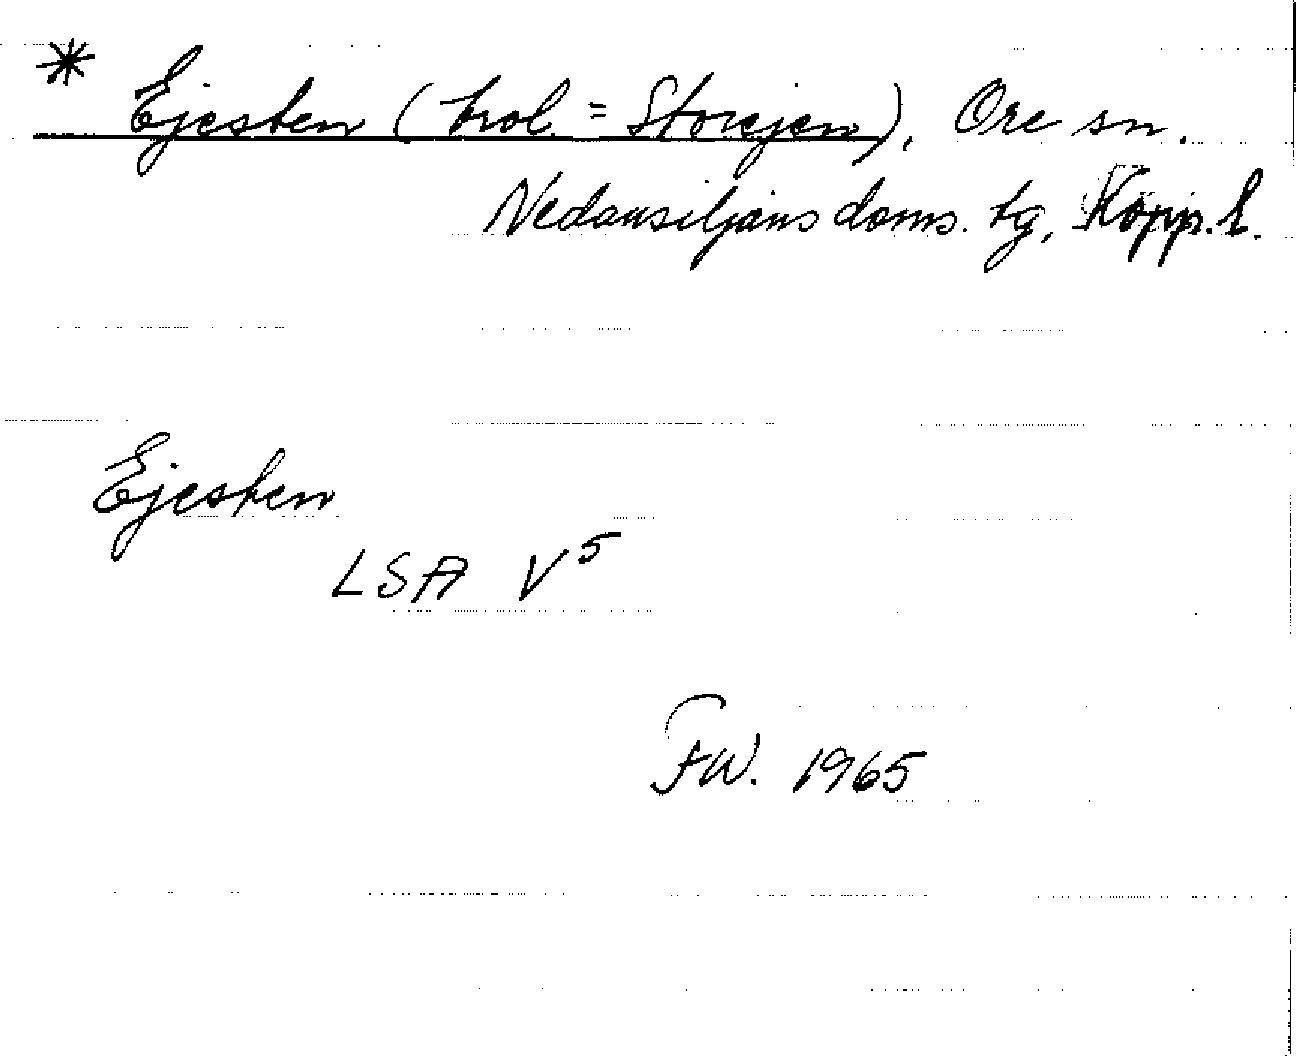 * Ejesten (trol. = Storejen), Ore sn.
Nedansiljans doms. tg, Kopp. l.
Ejesten
LSA V⁵
FW. 1965